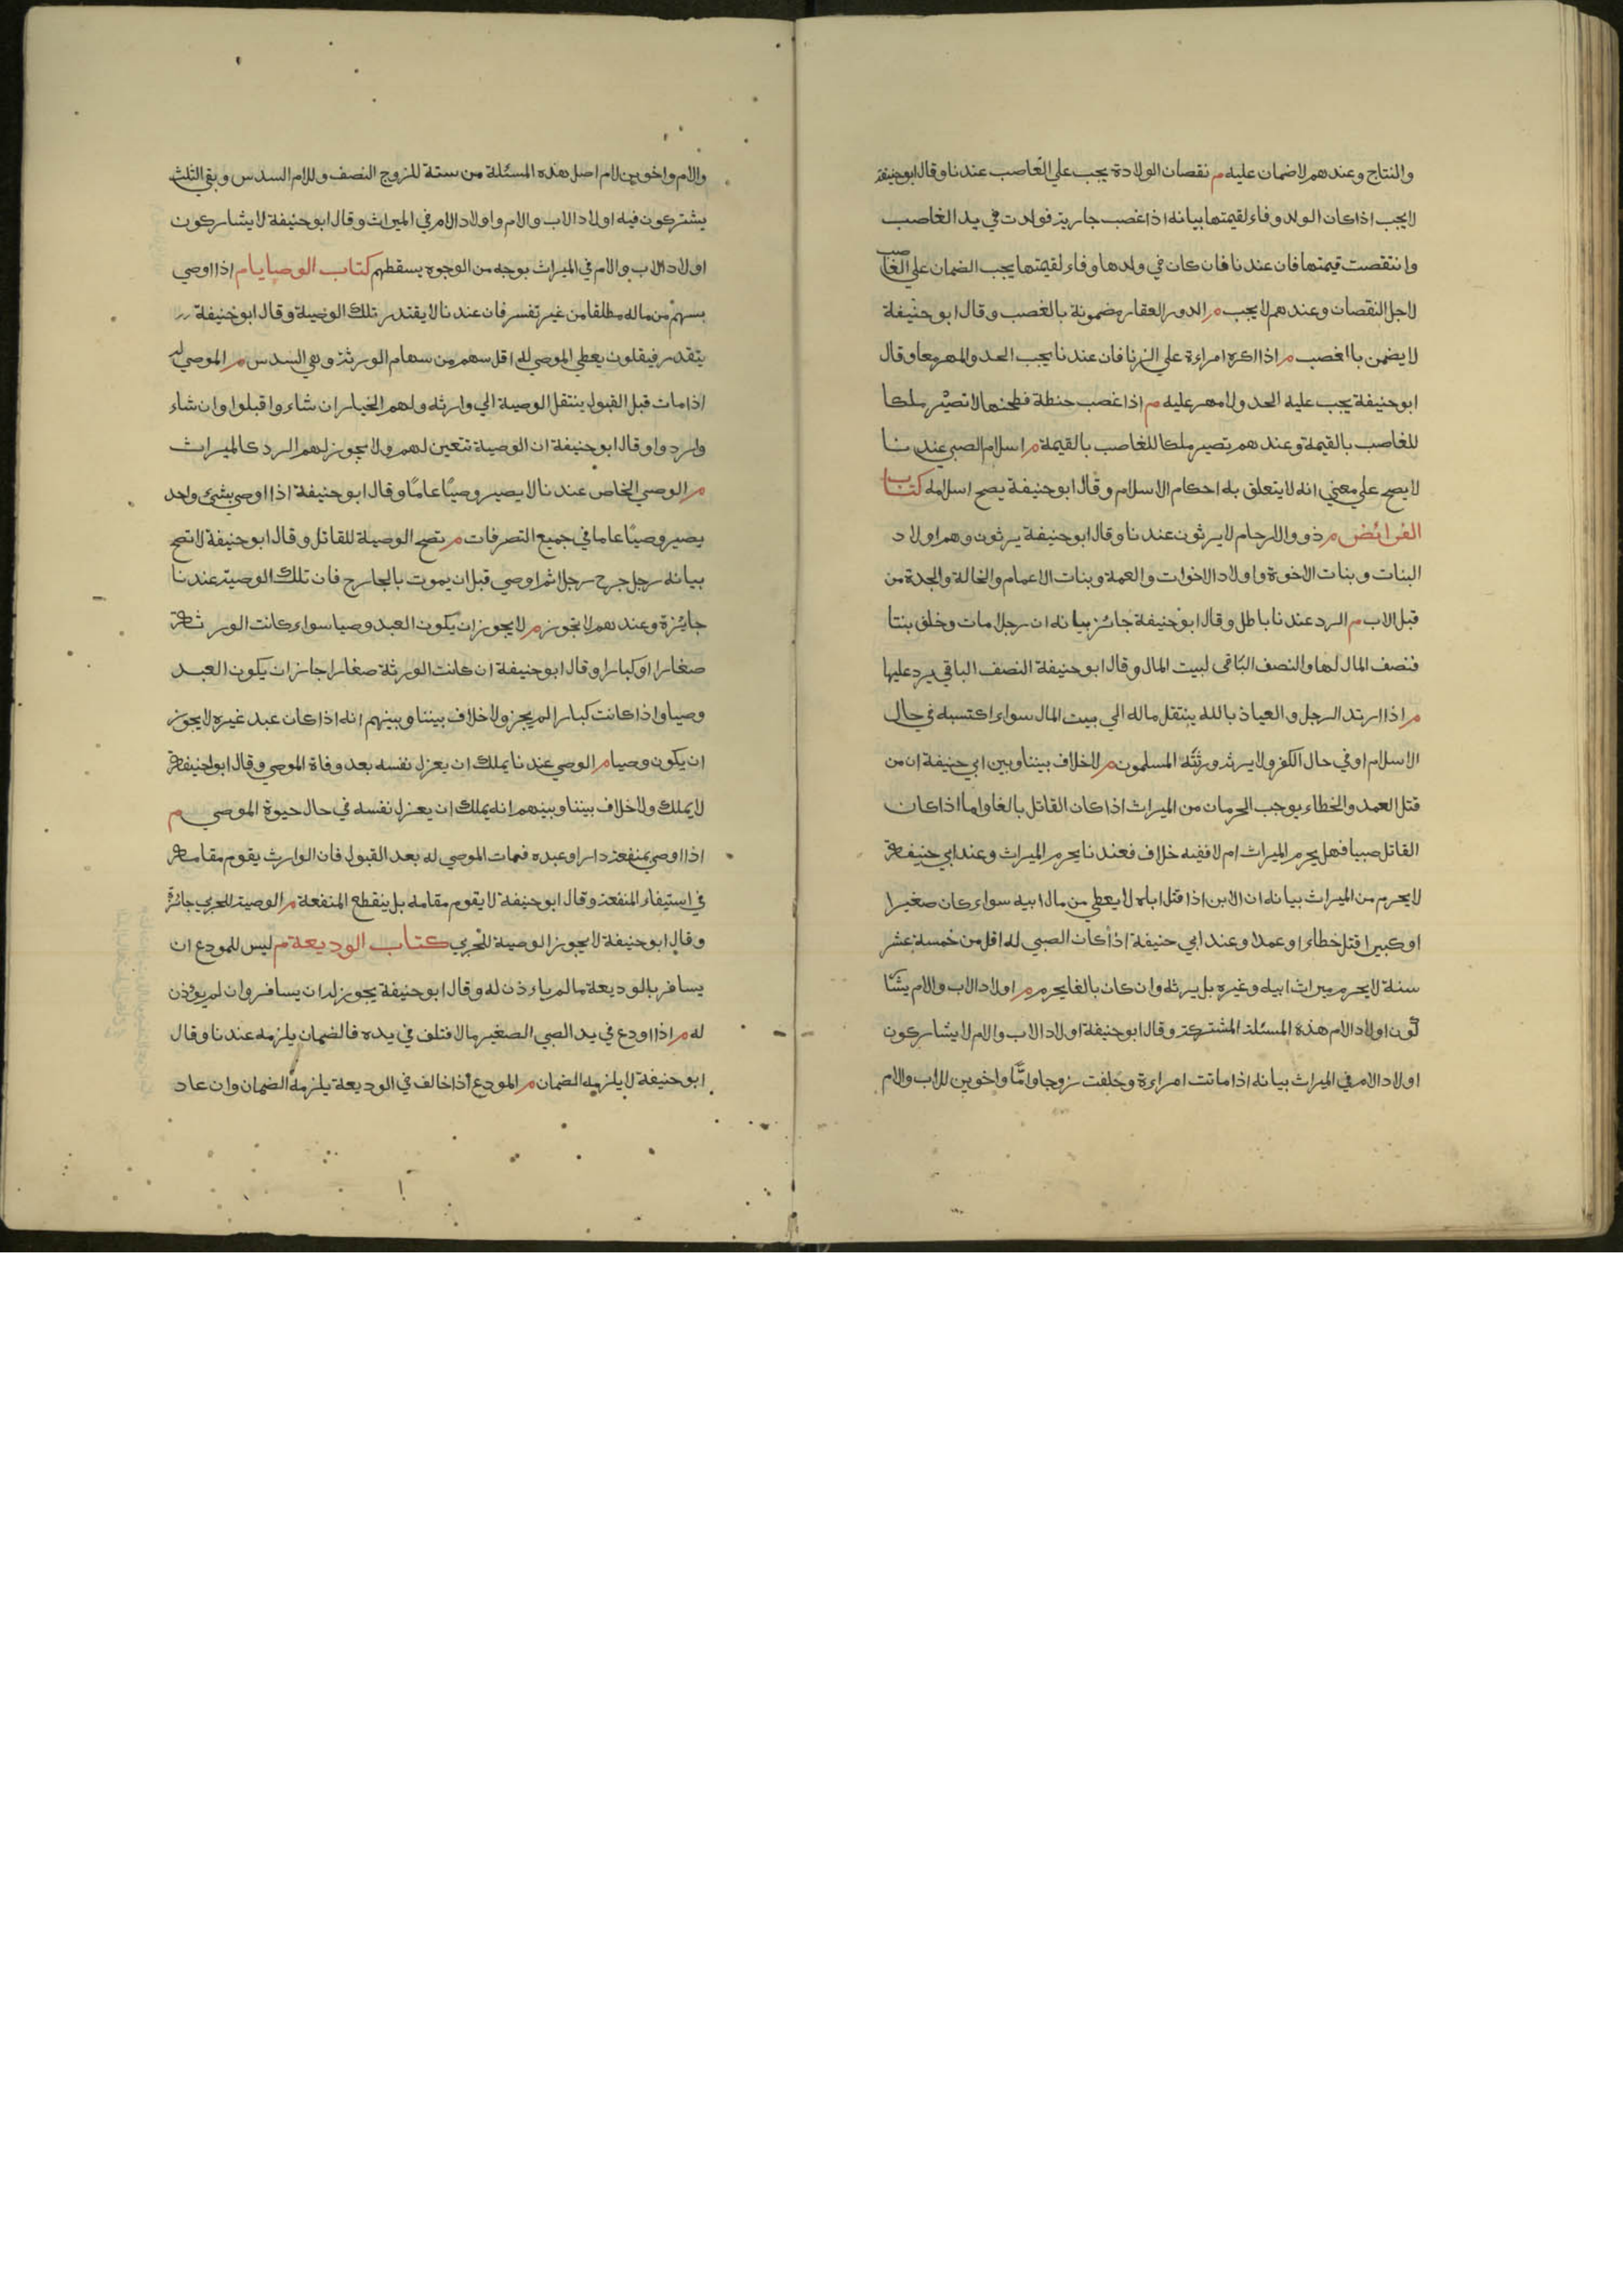 والنتاج وعندهم لا ضمان عليه م نقصان الولادة يجب علي الغاصب عندنا وقال ابو حنيفة
لا يجب اذا كان الولد وفاء لقيمتها بيانه اذا غصب جارية فولدت في يد الغاصب
وانتقصت قيمتها فان عندنا فان كان في ولدها وفاء لقيمتها يجب الضمان علي الغاصب
لاجل النقصان وعندهم لا يجب م الدور العقار مضمونة بالغصب وقال ابو حنيفة
لا يضمن بالغصب م اذا اكره امراءة علي الزنا فان عندنا يجب الحد والمهر معا وقال
ابو حنيفة يجب عليه الحد ولا مهر عليه م اذا غصب حنطة فطحنها لا تصير ملكا
للغاصب بالقيمة وعندهم تصير ملكا للغاصب بالقيمة م اسلام الصبي عندنا
لا يصح علي معني انه لا يتعلق به احكام الاسلام وقال ابو حنيفة يصح اسلامه كتاب
الفرائض م ذوو الارحام لا يرثون عندنا وقال ابو حنيفة يرثون وهم اولاد
البنات وبنات الاخوة واولاد الاخوات والعمة وبنات الاعمام والخالة والجدة من
قبل الاب م الرد عندنا باطل وقال ابو حنيفة جائز بيانه ان رجلا مات وخلف بنتا
فنصف المال لها والنصف الباقى لبيت المال وقال ابو حنيفة النصف الباقي يرد عليها
م اذا ارتد الرجل والعياذ بالله ينتقل ماله الي بيت المال سواء اكتسبه في حال
الاسلام او في حال الكفر ولا يرثه ورثته المسلمون م لا خلاف بيننا وبين ابي حنيفة ان من
قتل العمد والخطاء يوجب الحرمان من الميراث اذا كان القاتل بالغا واما اذا كان
القاتل صبيا فهل يحرم الميراث ام لا ففيه خلاف فعندنا يحرم الميراث وعند ابي حنيفة
لا يحرم من الميراث بيانه ان الابن اذا قتل اباه لا يعطي من مال ابيه سواء كان صغيرا
او كبيرا قتل خطاء او عمدا وعند ابي حنيفة اذا كان الصبي له اقل من خمسة عشر
سنة لا يحرم ميراث ابيه وغيره بل يرثه وان كان بالغا يحرم م اولاد الاب والام يشا
كون اولاد الام هذه المسئلة المشتركة وقال ابو حنيفة اولاد الاب والام لا يشاركون
اولاد الام في الميراث بيانه اذا ماتت امراءة وخلفت زوجا واما واخوين للاب والام
والام واخوين لام اصل هذه المسئلة من ستة للزوج النصف وللام السدس وبقي الثلث
يشتركون فيه اولاد الاب والام واولاد الام في الميراث وقال ابو حنيفة لا يشاركون
اولاد الاب والام في الميراث بوجه من الوجوه يسقطهم كتاب الوصايا م اذا اوصي
بسهم من ماله مطلقا من غير تفسر فان عندنا لا يقتدر تلك الوصية وقال ابو حنيفة
يتقدر فيقلون يعطي الموصي له اقل سهم من سهام الورثة وهي السدس م الموصي له
اذا مات قبل القبول ينتقل الوصية الي وارثه ولهم الخيار ان شاءوا قبلوا وان شاء
واردوا وقال ابو حنيفة ان الوصية تتعين لهم ولا يجوز لهم الرد كالميراث
م الوصي الخاص عندنا لا يصير وصيا عاما وقال ابو حنيفة اذا اوصي بشئ واحد
يصير وصيا عاما في جميع التصرفات م تصح الوصية للقاتل وقال ابو حنيفة لا تصح
بيانه رجل جرح رجلا ثم اوصي قبل ان يموت بالجارح فان تلك الوصية عندنا
جائزة وعندهم لا يجوز م لا يجوز ان يكون العبد وصيا سواء كانت الورثة
صغارا او كبارا وقال ابو حنيفة ان كانت الورثة صغارا جاز ان يكون العبد
وصيا واذا كانت كبارا لم يجز ولا خلاف بيننا وبينهم انه اذا كان عبد غيره لا يجوز
ان يكون وصيا م الوصي عندنا يملك ان يعزل نفسه بعد وفاة الموصي وقال ابو حنيفة
لا يملك ولا خلاف بيننا وبينهم انه يملك ان يعزل نفسه في حال حيوة الموصي م
اذا اوصي بمنفعة دار او عبده فمات الموصي له بعد القبول فان الوارث يقوم مقامه
في استيفاء المنفعة وقال ابو حنيفة لا يقوم مقامه بل ينقطع المنفعة م الوصية للحربي جائزة
وقال ابو حنيفة لا يجوز الوصية للحربي كتاب الوديعة م ليس للمودع ان
يسافر بالوديعة ما لم ياءذن له وقال ابو حنيفة يجوز له ان يسافر وان لم يؤذن
له م اذا اودع في يد الصبي الصغير مالا فتلف في يده فالضمان يلزمه عندنا وقال
ابو حنيفة لا يلزمه الضمان م المودع اذا خالف في الوديعة يلزمه الضمان وان عاد